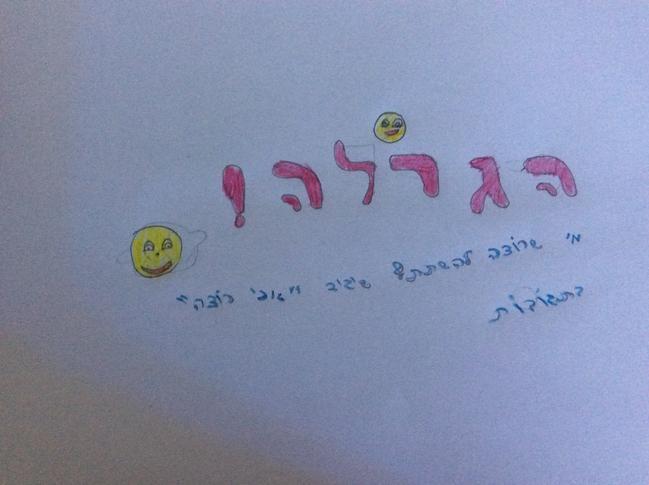 הגרלה!
מי שרוצה להשתתף שיגיב "אני רוצה"
בתגובות